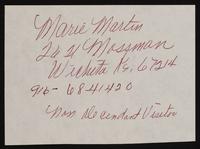 Marie Martin
2621 Mossman
Wichita Ks, 67214
916- 6841420
Non Decendant Visitor